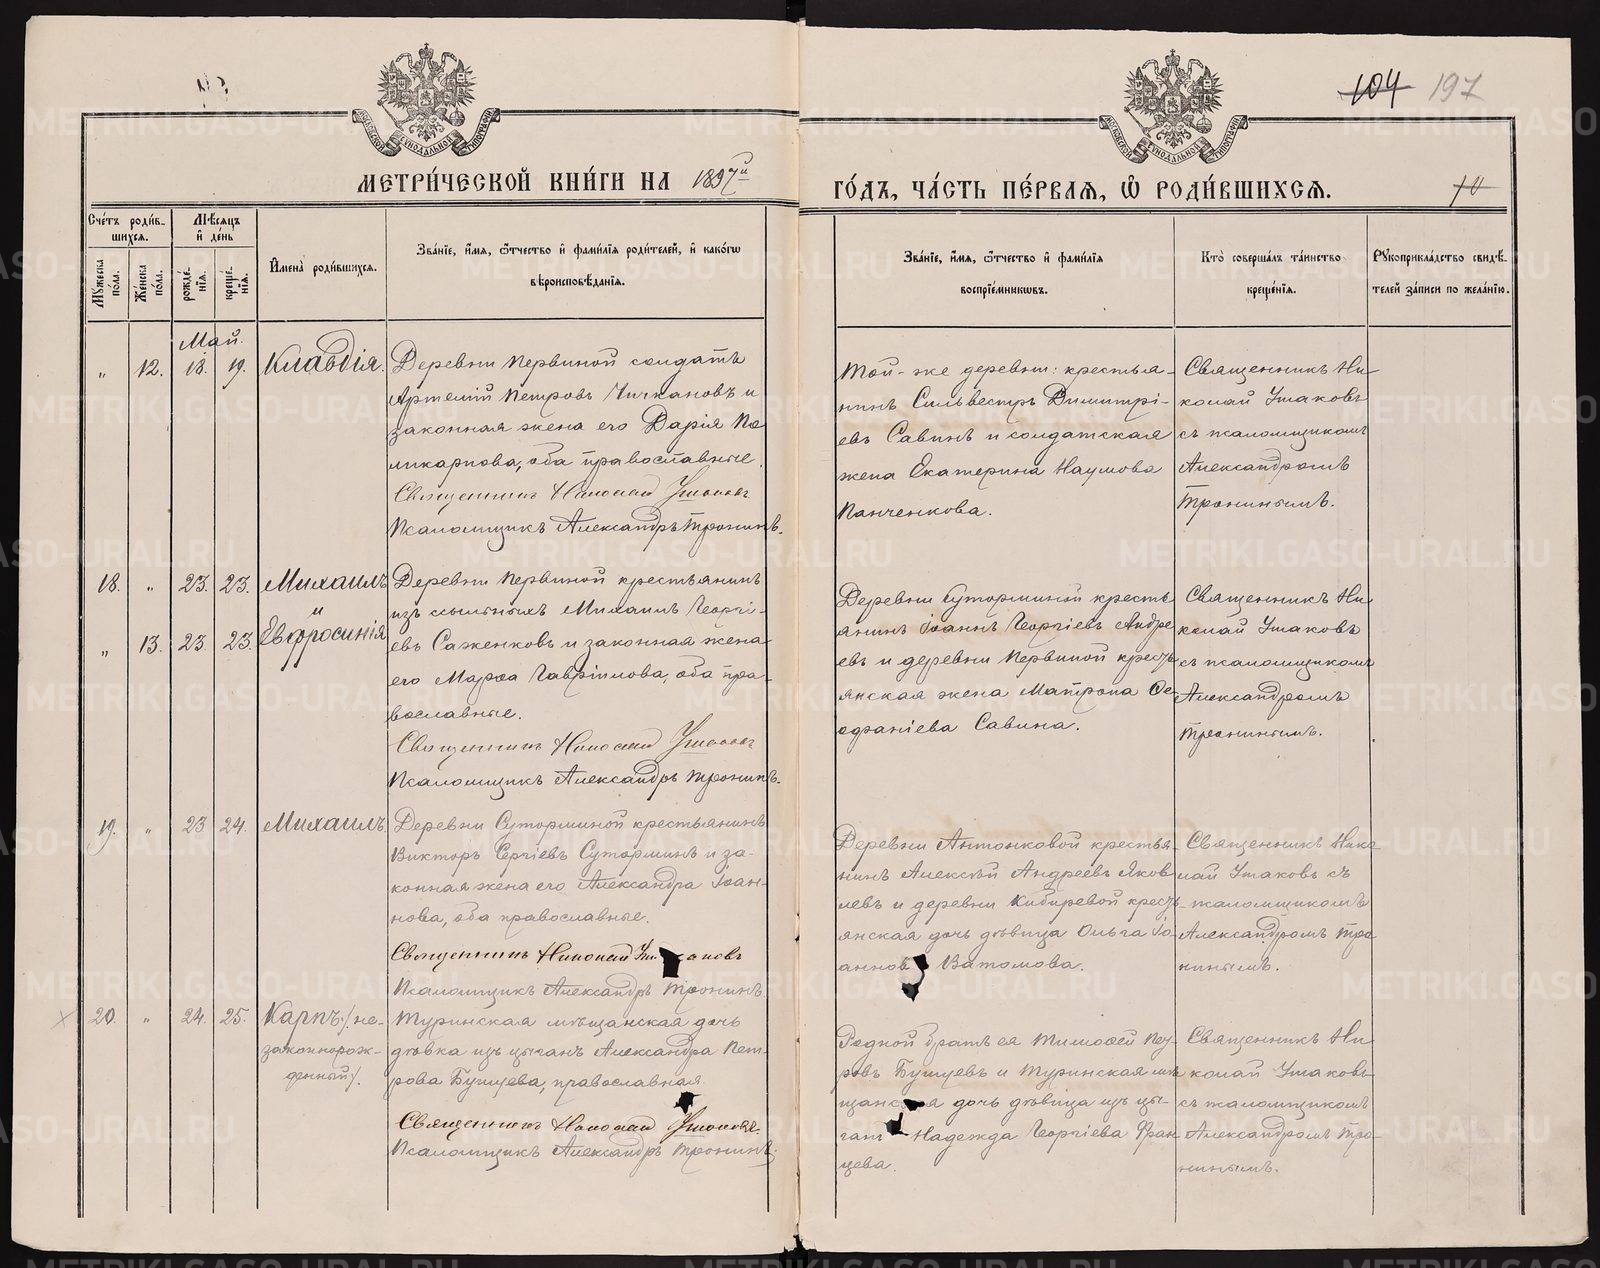 104 197
МЕТРИ́ЧЕСКОЙ КНИ́ГИ НА 1897й
ГО́ДЪ, ЧА́СТЬ ПЕ́РВАЯ, Ѽ РОДИ́ВШИХСЯ.
10
Сче́тъ роди́в-
шихся.
Мѣсяцъ
и҆ де́нь
Му́жеска
по́ла.
Же́нска
по́ла.
рожде́-
нїя.
креще́-
нїя.
И҆мена̀ роди́вшихся.
Зва́нїе, и҆́мя, ѻ҆́тчество и҆ фами́лїя роди́телей, и҆ како́гѡ
вѣроисповѣ́данїя.
Зва́нїе, и҆́мя, ѻ҆́тчество и҆ фами́лїя
воспрїе́мникѡвъ.
Кто̀ соверша́лъ та́инство
креще́нїя.
Рꙋкоприкла́дство свидѣ́-
телей за́писи по жела́нїю.
Май.
„ 12. 18. 19. Клавдія.
Деревни Первиной солдатъ
Артемій Петровъ Чичкановъ и
законная жена его Дарія По
ликарпова, оба православные.
Священникъ Николай Ушаковъ
Псаломщикъ Александръ Тронинъ.
Той-же деревни: крестья-
нинъ Сильвестръ Димитрі-
евъ Савинъ и солдатская
жена Екатерина Наумова
Панченкова.
Священникъ Ни-
колай Ушаковъ
съ псаломщикомъ
Александромъ
Тронинымъ.
18. „ 23. 23. Михаилъ
и
„ 13. 23. 23. Евфросинія
Деревни Первиной крестьянинъ
изъ ссыльныхъ Михаилъ Георгі-
евъ Саженковъ и законная жена
его Марѳа Гавріилова, оба пра-
вославные.
Священникъ Николай Ушаковъ
Псаломщикъ Александръ Тронинъ.
Деревни Сутормıной кресть
янинъ Іоаннъ Георгіевъ Андре
евъ и деревни Первиной кресть
янская жена Матрона Ѳе-
офаніева Савина.
Священникъ Ни-
колай Ушаковъ
съ псаломщикомъ
Александромъ
Тронинымъ.
19. „ 23 24. Михаилъ
Деревни Суторминой крестьянинъ
Викторъ Сергіевъ Суторминъ и за-
конная жена его Александра Іоан-
нова, оба православные.
Священникъ Николай Ушаковъ
Псаломщикъ Александръ Тронинъ.
Деревни Антонковой крестья-
нинъ Алексѣй Андреевъ Яков
левъ и деревни Кибиревой кресть-
янская дочь дѣвица Ольга Іо-
аннова Ватомова.
Священникъ Нико-
лай Ушаковъ съ
псаломщикомъ
Александромъ Тро
нинымъ.
20. „ 24. 25. Карпъ /не-
законнорож-
денный/.
Туринская мѣщанская дочь
дѣвка изъ цыганъ Александра Пет-
рова Бушуева, православная.
Священникъ Николай Ушаковъ.
Псаломщикъ Александръ Тронинъ.
Родной братъ ея Тимоѳей Пет-
ровъ Бушуевъ и Туринская мѣ
щанская дочь дѣвица изъ цы-
ганъ Надежда Георгіева Фран
цева.
Священникъ Ни
колай Ушаковъ
съ псаломщикомъ
Александромъ Тро-
нинымъ.